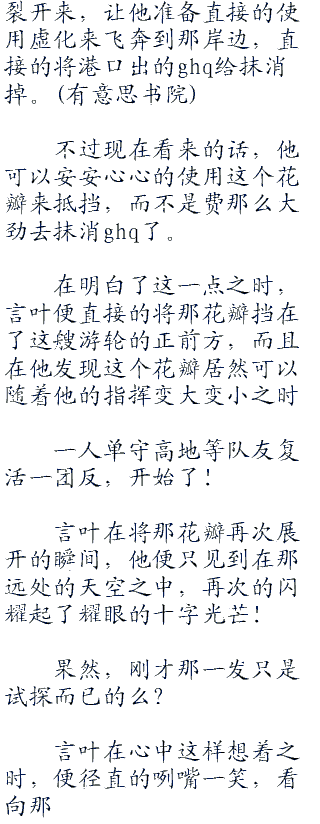 裂开来，让他准备直接的使
用虚化来飞奔到那岸边，直
接的将港口出的ghq给抹消
掉。(有意思书院)
不过现在看来的话，他
可以安安心心的使用这个花
瓣来抵挡，而不是费那么大
劲去抹消ghq了。
在明白了这一点之时，
言叶便直接的将那花瓣挡在
了这艘游轮的正前方，而且
在他发现这个花瓣居然可以
随着他的指挥变大变小之时
一人单守高地等队友复
活一团反，开始了！
言叶在将那花瓣再次展
开的瞬间，他便只见到在那
远处的天空之中，再次的闪
耀起了耀眼的十字光芒！
果然，刚才那一发只是
试探而已的么？
言叶在心中这样想着之
时，便径直的咧嘴一笑，看
向那